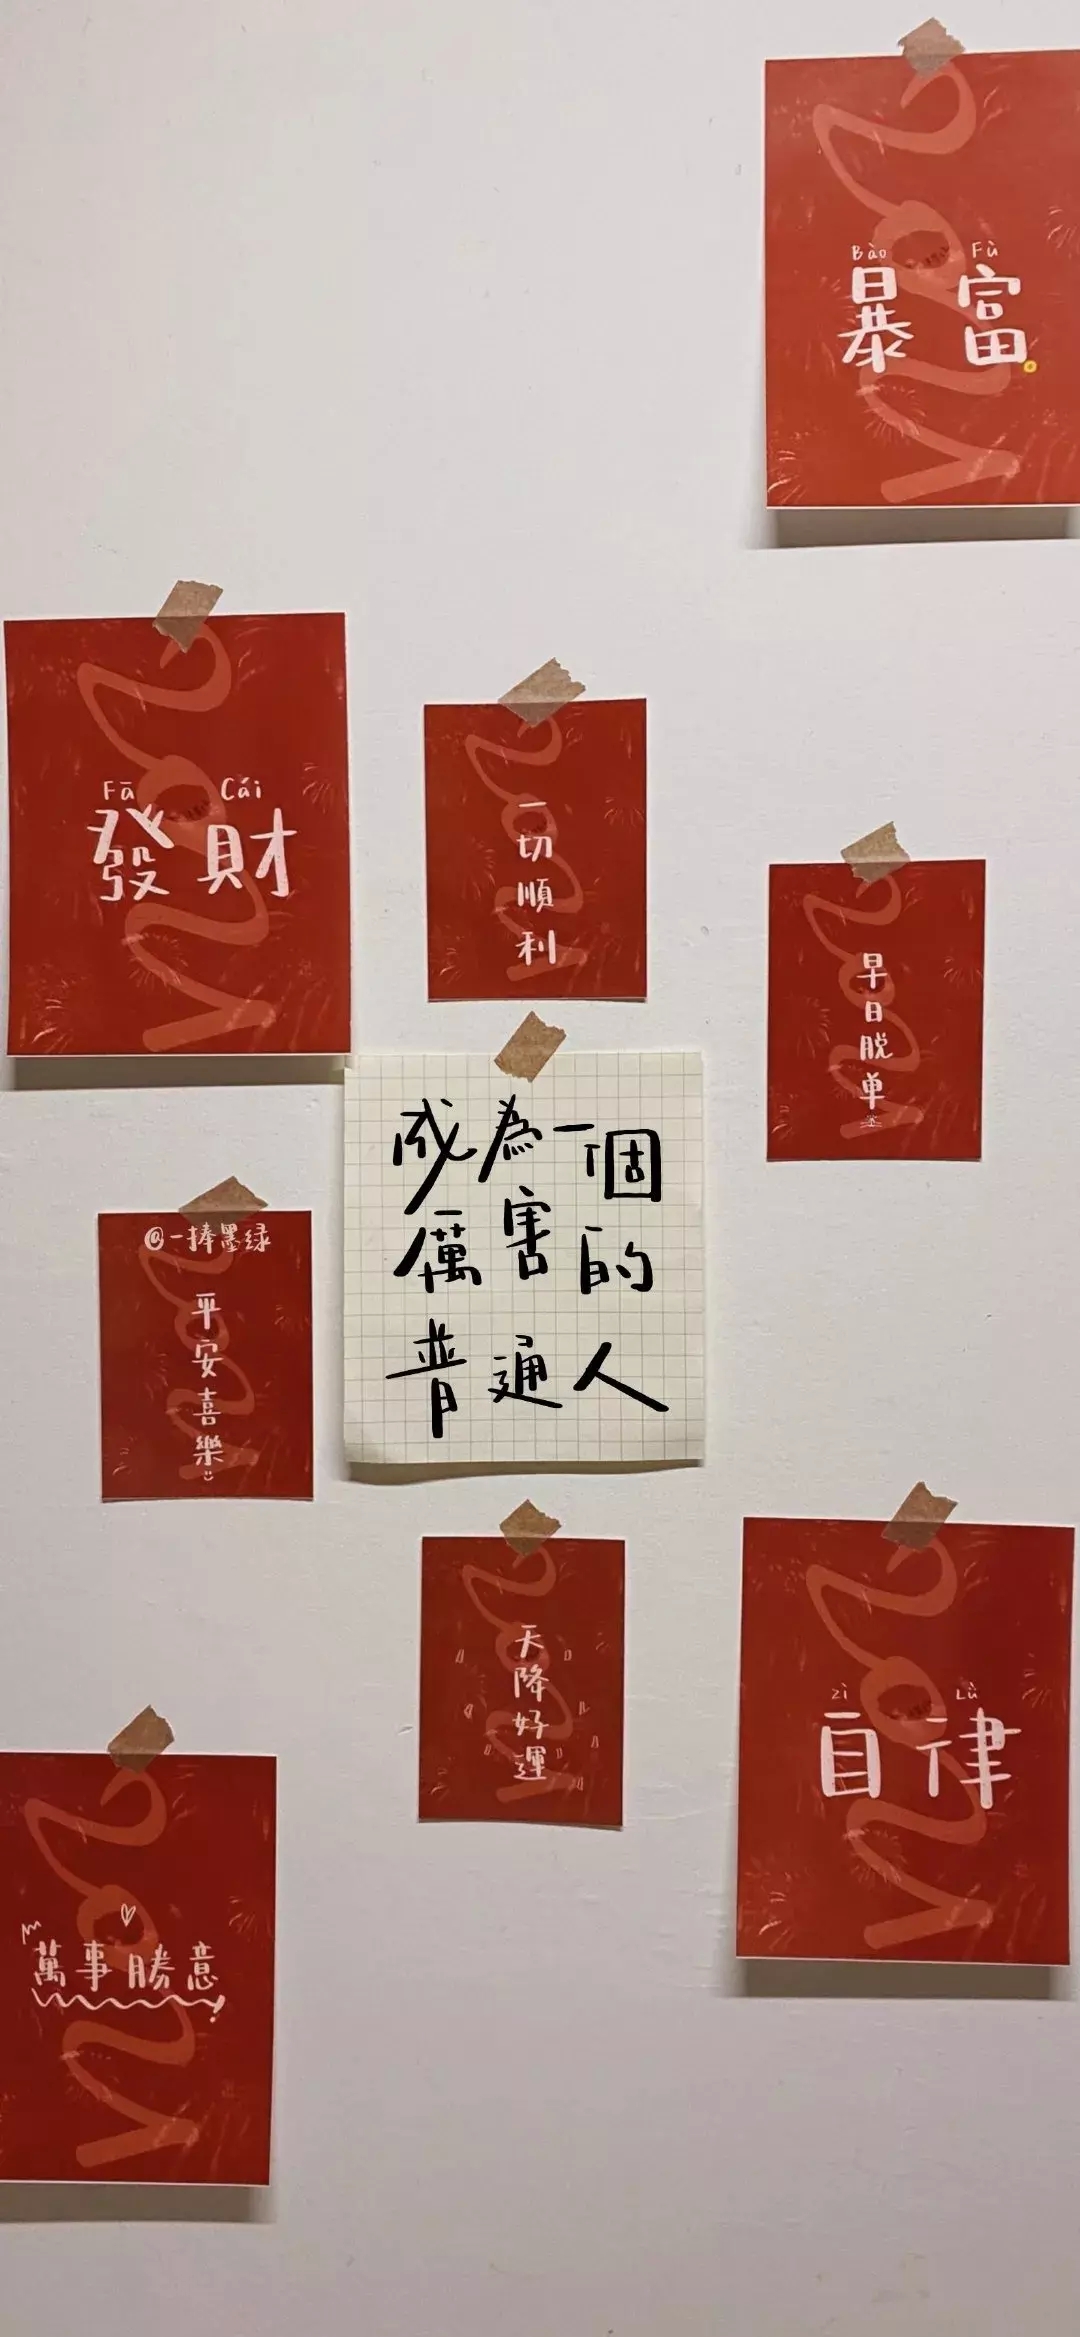 Bào Fù
暴富
Fā Cái
發財
一切順利
早日脱单
成為一個
厲害的
普通人
@一捧墨绿
平安喜樂
天降好運
zì Lǜ
自律
萬事勝意